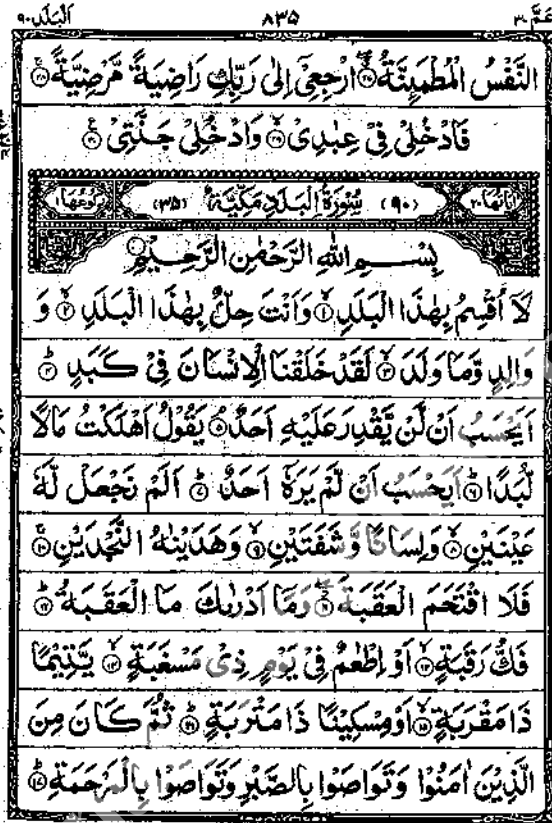 عَمَّ ٣٠ ٨٣٥ اَلْبَلَد ٩٠
النَّفْسُ الْمُطْمَىِٕنَّةُ ۝٢٧ ارْجِعِیْۤ اِلٰى رَبِّكِ رَاضِیَةً مَّرْضِیَّةً ۝٢٨
فَادْخُلِیْ فِیْ عِبٰدِیْ ۝٢٩ وَادْخُلِیْ جَنَّتِیْ ۝٣٠
اٰیَاتُهَا ٢٠ (٩٠) سُوْرَةُ الْبَلَدِ مَكِّیَّةٌ (٣٥) رُكُوْعُهَا ١
بِسْمِ اللّٰهِ الرَّحْمٰنِ الرَّحِیْمِ
لَاۤ اُقْسِمُ بِهٰذَا الْبَلَدِ ۝١ وَاَنْتَ حِلٌّۢ بِهٰذَا الْبَلَدِ ۝٢ وَ
وَالِدٍ وَّمَا وَلَدَ ۝٣ لَقَدْ خَلَقْنَا الْاِنْسَانَ فِیْ كَبَدٍ ۝٤
اَیَحْسَبُ اَنْ لَّنْ یَّقْدِرَ عَلَیْهِ اَحَدٌ ۝٥ یَقُوْلُ اَهْلَكْتُ مَالًا
لُّبَدًا ۝٦ اَیَحْسَبُ اَنْ لَّمْ یَرَهٗۤ اَحَدٌ ۝٧ اَلَمْ نَجْعَلْ لَّهٗ
عَیْنَیْنِ ۝٨ وَلِسَانًا وَّشَفَتَیْنِ ۝٩ وَهَدَیْنٰهُ النَّجْدَیْنِ ۝١٠
فَلَا اقْتَحَمَ الْعَقَبَةَ ۝١١ وَمَاۤ اَدْرٰىكَ مَا الْعَقَبَةُ ۝١٢
فَكُّ رَقَبَةٍ ۝١٣ اَوْ اِطْعٰمٌ فِیْ یَوْمٍ ذِیْ مَسْغَبَةٍ ۝١٤ یَّتِیْمًا
ذَا مَقْرَبَةٍ ۝١٥ اَوْ مِسْكِیْنًا ذَا مَتْرَبَةٍ ۝١٦ ثُمَّ كَانَ مِنَ
الَّذِیْنَ اٰمَنُوْا وَتَوَاصَوْا بِالصَّبْرِ وَتَوَاصَوْا بِالْمَرْحَمَةِ ۝١٧